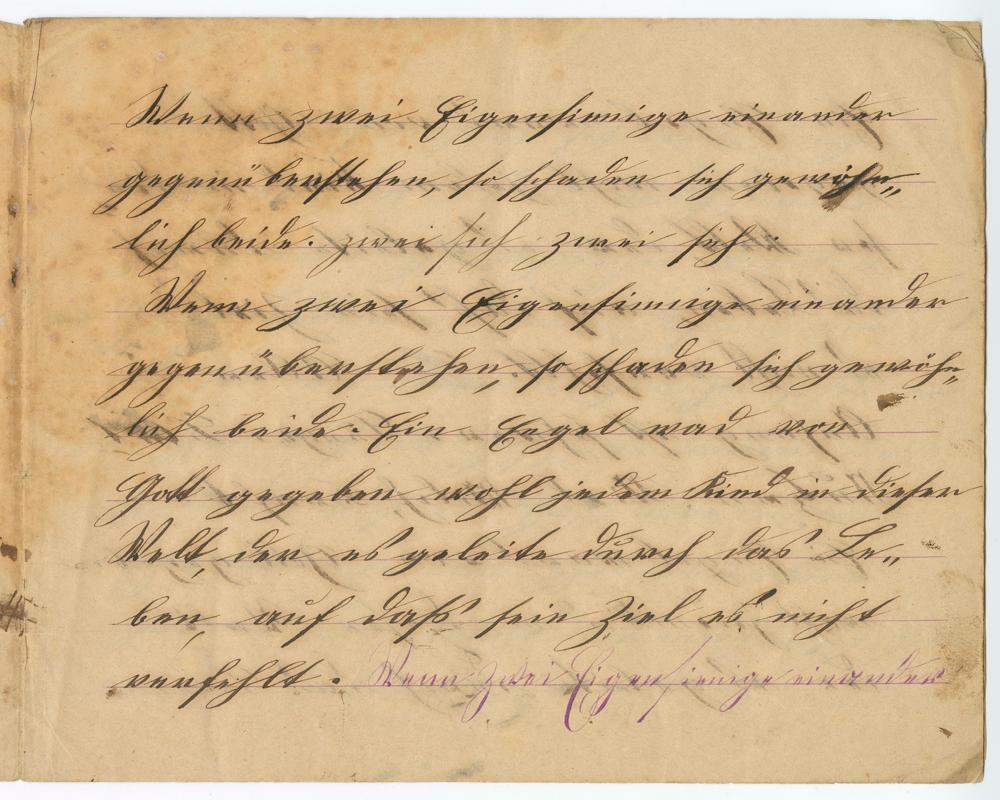 Wenn zwei Eigensinnige einander
gegenüberstehen, so schaden sich gewöhn„
lich beide. zwei sich zwei sich.
Wenn zwei Eigensinnige einander
gegenüberstehen, so schaden sich gewöhn„
lich beide. Ein Engel wad von
Gott gegeben wohl jedem Kind in dieser
Welt, der es geleite durch das Le„
ben, auf daß sein Ziel es nicht
verfehlt. Wenn zwei Eigensinnige einander